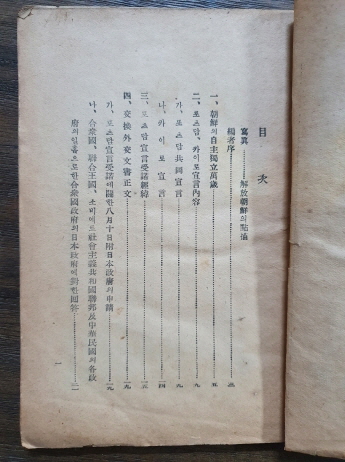 目次
寫眞 ........ 解放朝鮮의 點描
編者序 ........ 三
一、朝鮮의 自主獨立萬歲 ........ 五
二、포스담、카이로宣言內容 ........ 九
가、포스담共同宣言 ........ 九
나、카이로宣言 ........ 一四
三、포스담宣言受諾經緯 ........ 一六
四、交換外交文書正文 ........ 一九
가、포스담宣言受諾에關한八月十日附日本政府의申請 ........ 一九
나、合衆國、聯合王國、소비에트社會主義共和國聯邦及中華民國의各政
府의일홈으로한合衆國政府의日本政府에對한回答 ........ 二一
一